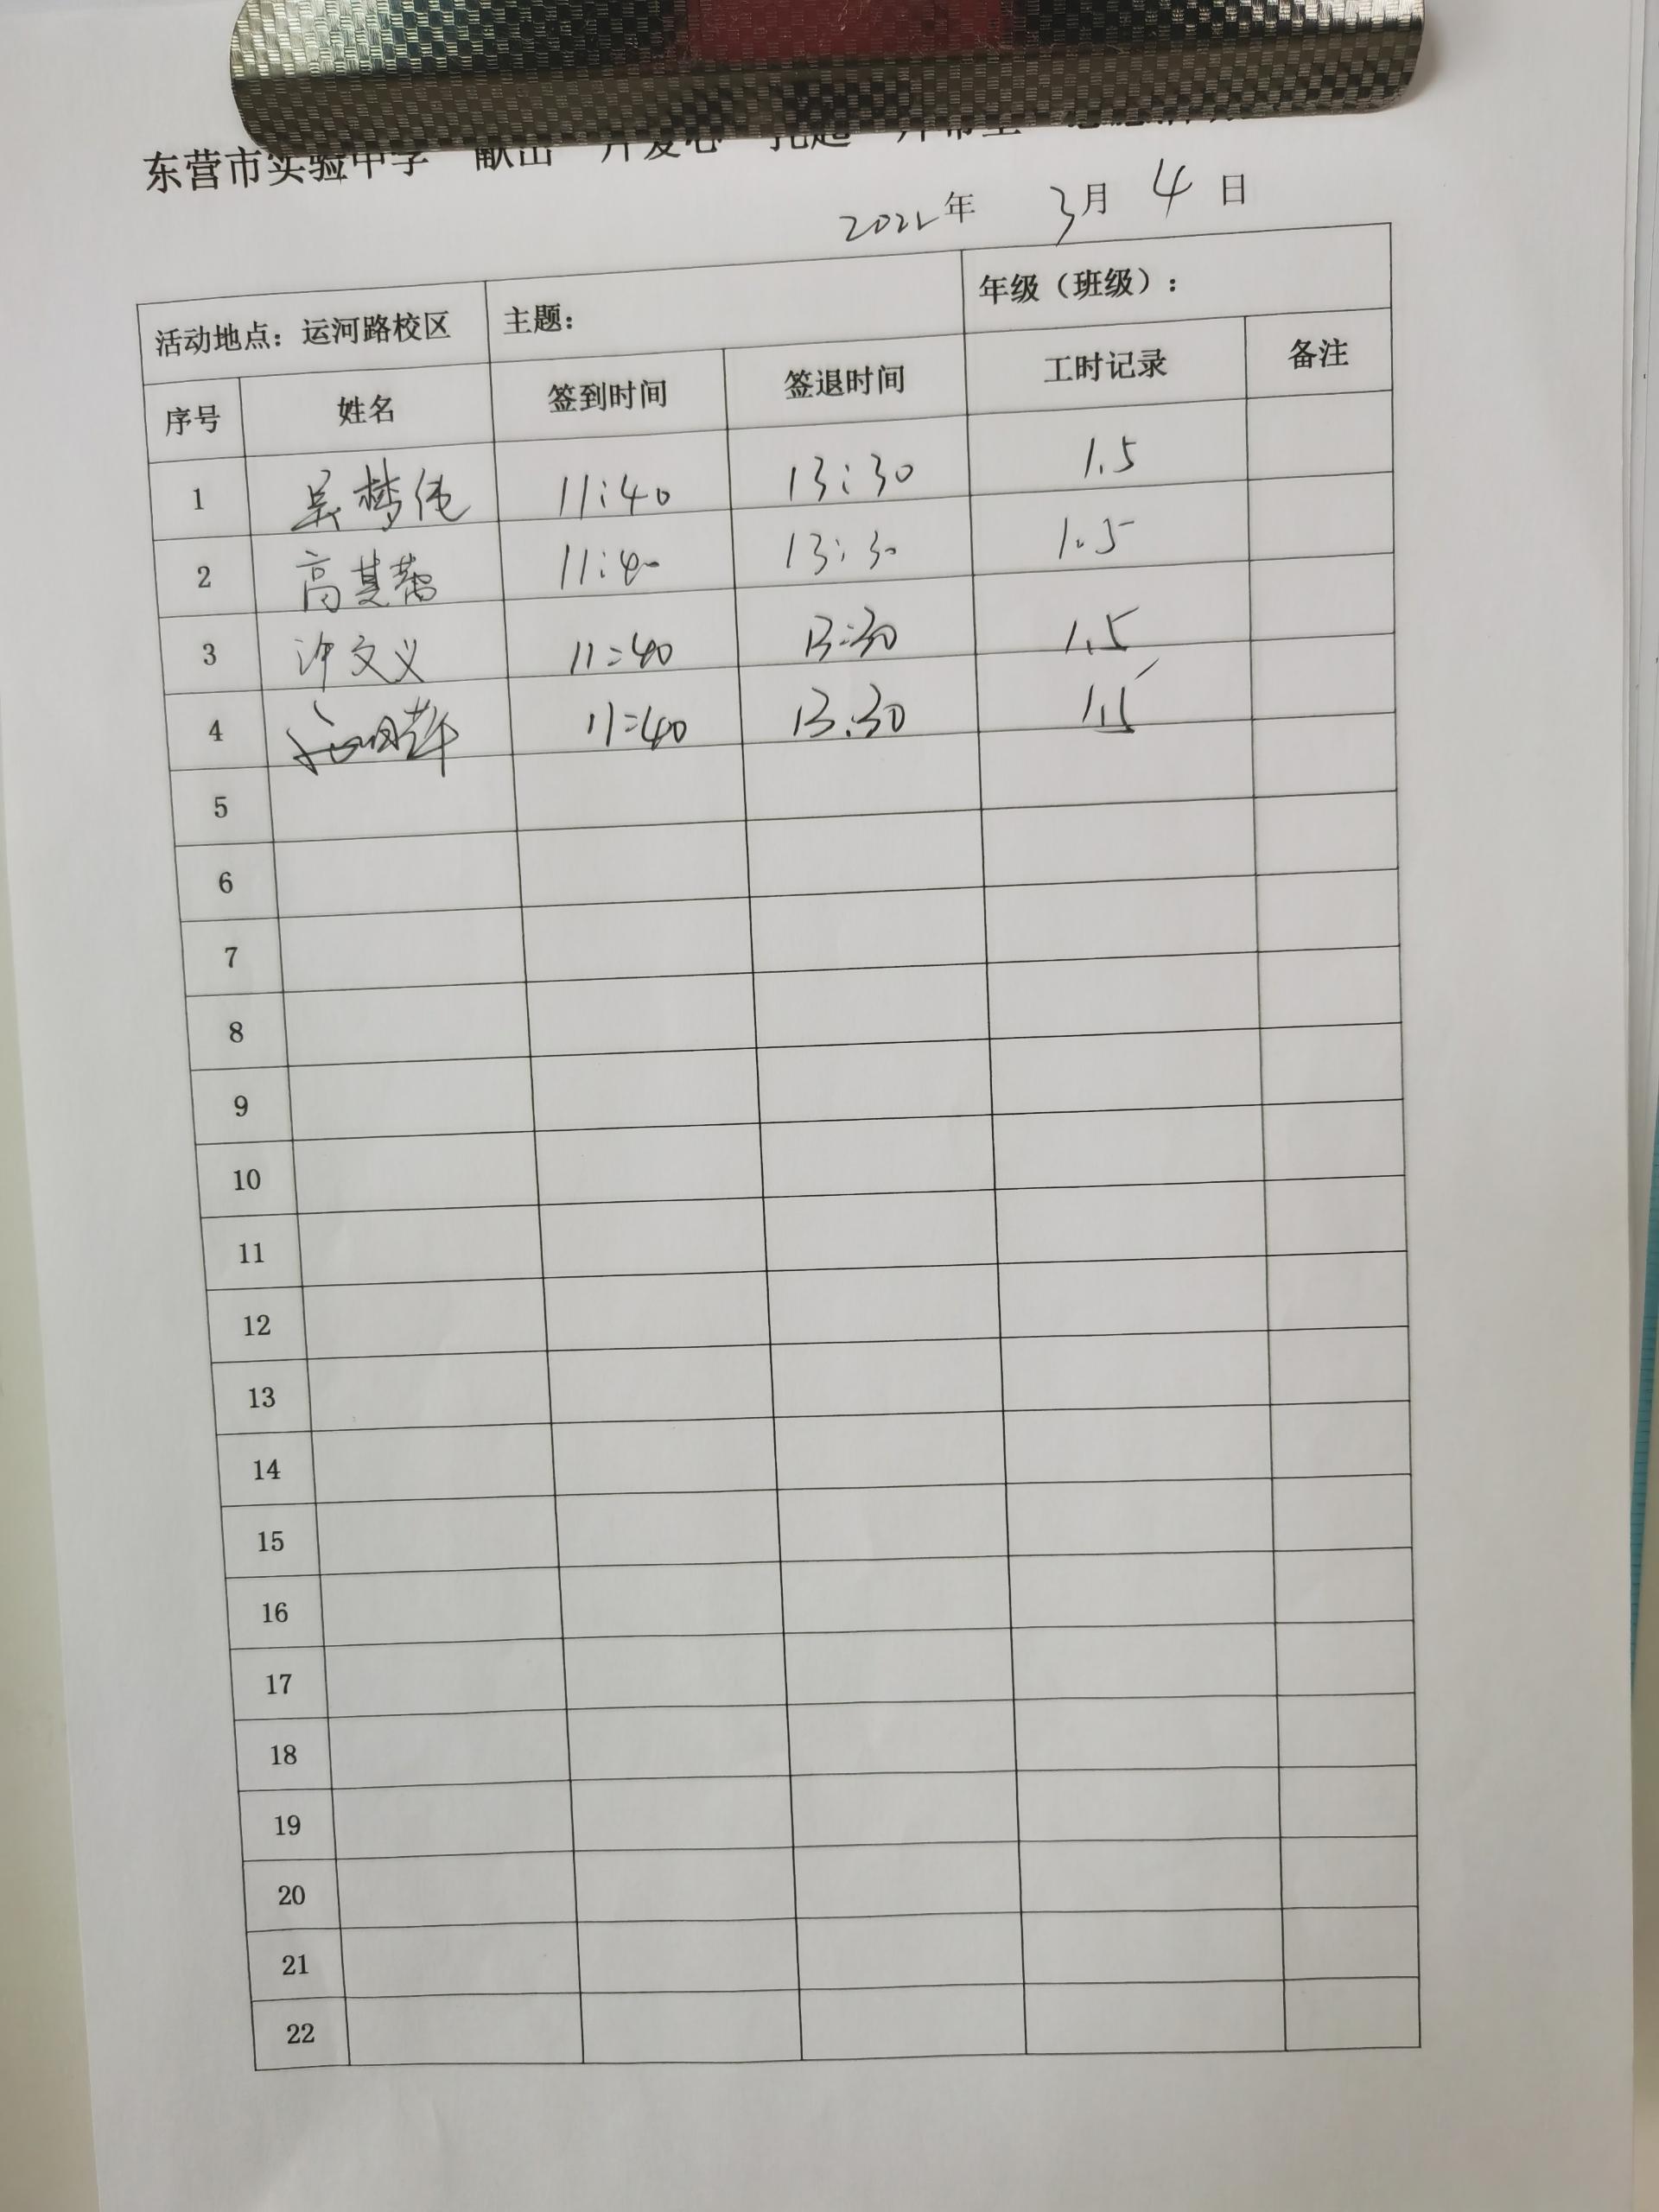 东营市实验中学 献出一片爱心 托起一片希望
2022年 3月 4日
活动地点：运河路校区 主题： 年级（班级）：
序号 姓名 签到时间 签退时间 工时记录 备注
1 吴梦伟 11:40 13:30 1.5
2 高 11:40 13:30 1.5
3 许文义 11:40 13:30 1.5
4 11:40 13:30 1.5
5
6
7
8
9
10
11
12
13
14
15
16
17
18
19
20
21
22